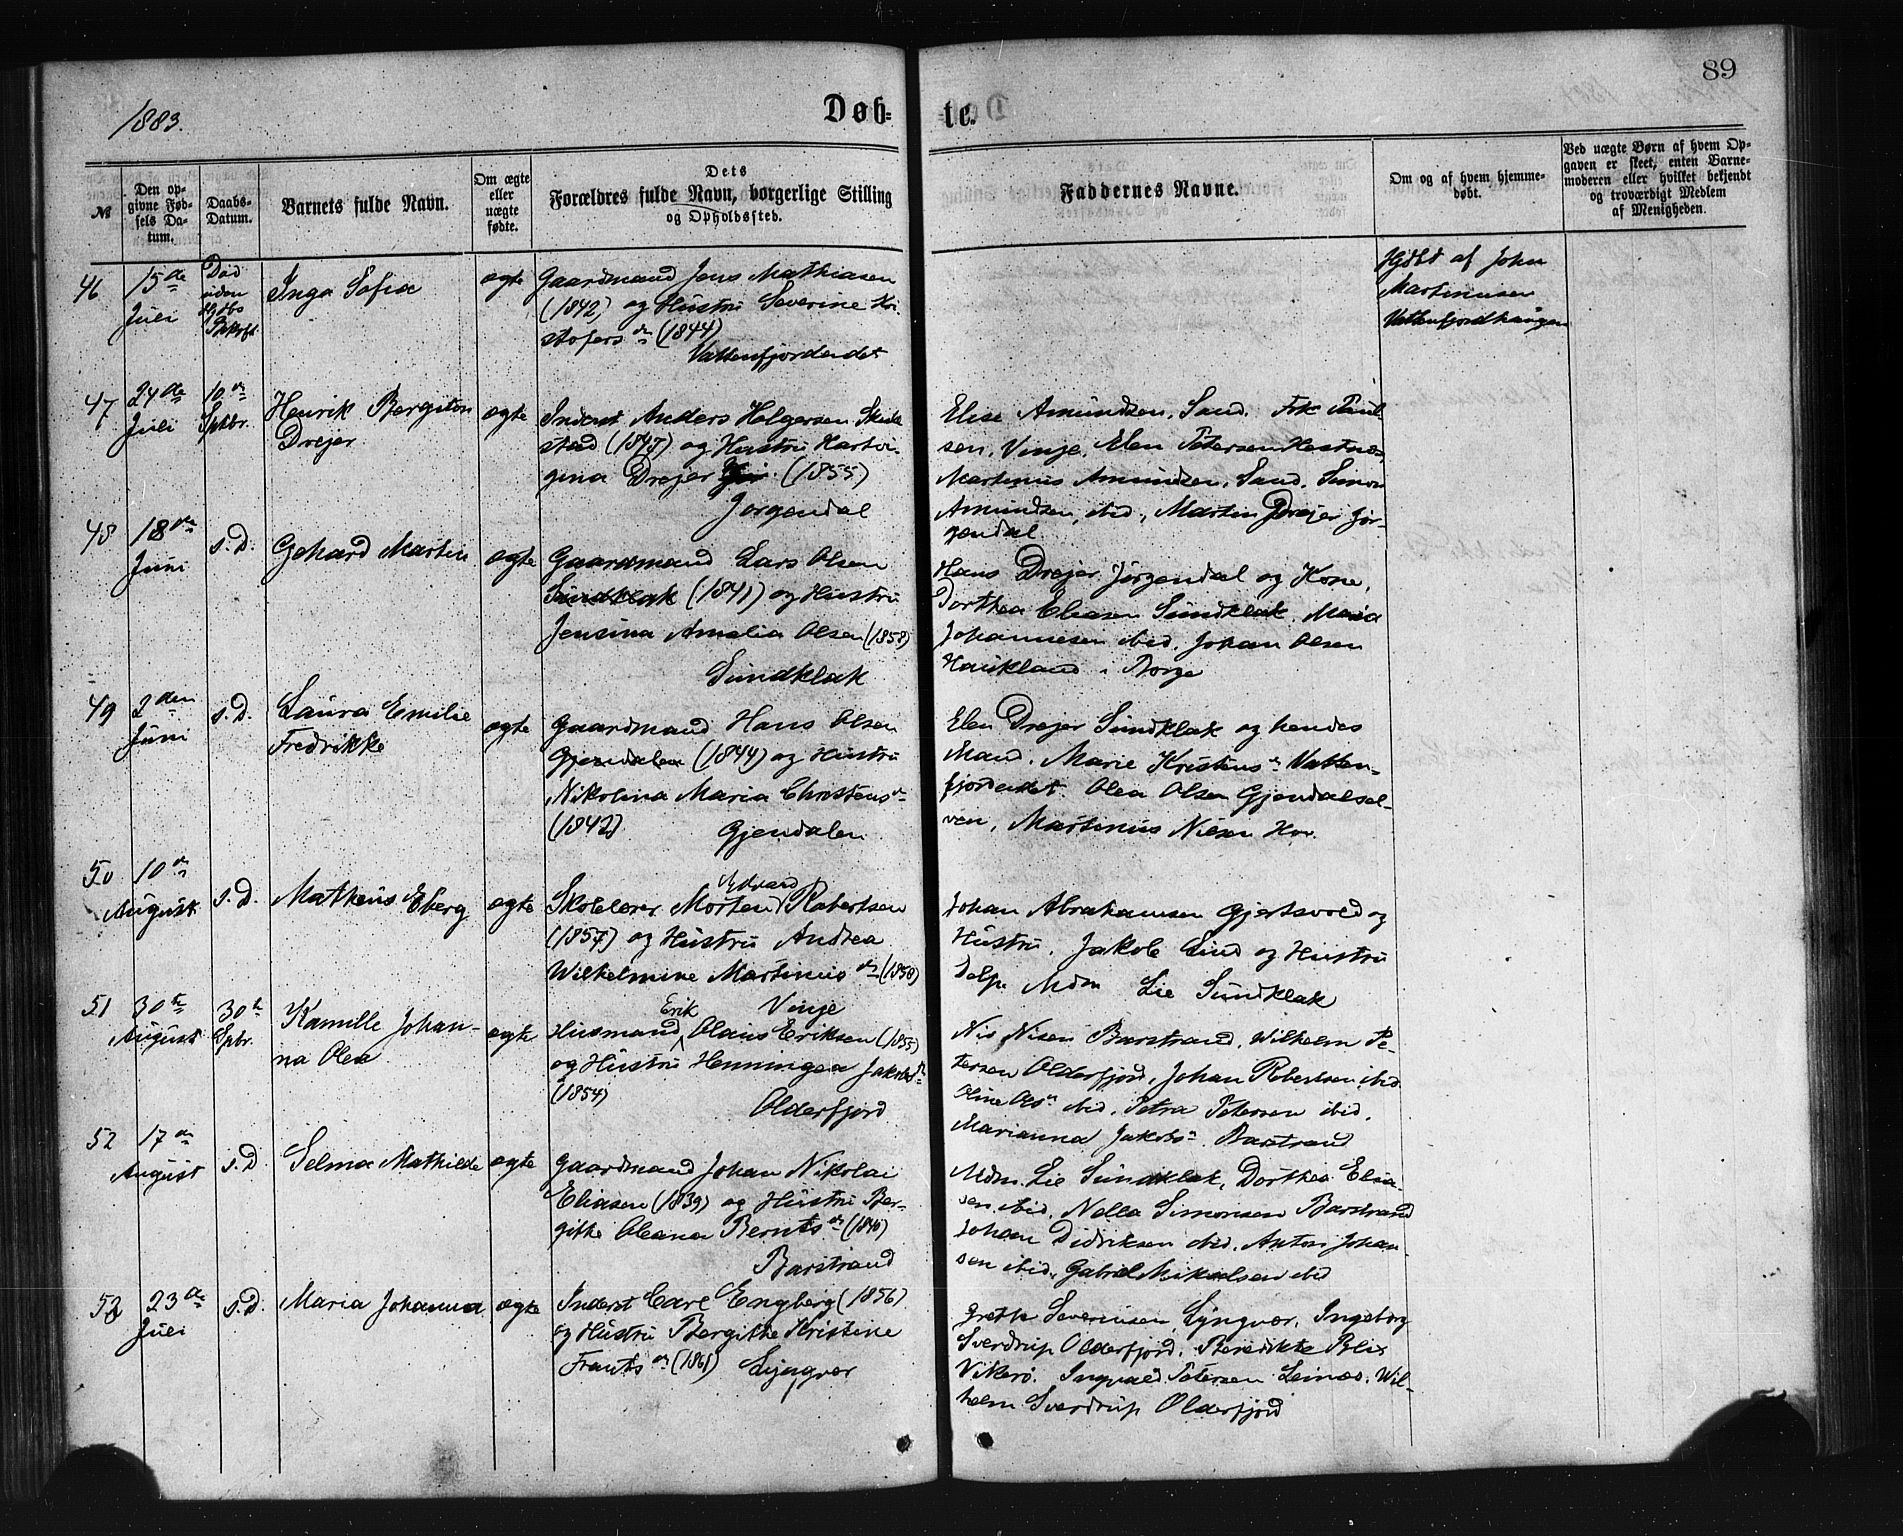 89
1883.
Døb-
te.
№
Den op-
givne Fød-
sels Da-
tum.
Daabs-
Datum.
Barnets fulde Navn.
Om ægte
eller
uægte
fødte.
Dets
Forældres fulde Navn, borgerlige Stilling
og Opholdssted.
Faddernes Navne.
Om og af hvem hjemme-
døbt.
Ved uægte Børn af hvem Op-
gaven er skeet, enten Barne-
moderen eller hvilket bekjendt
og troværdigt Medlem
af Menigheden.
46
15de
Juli
Død
uden
Hjdbs
Inga Sofia
ægte
Gaardmand Jens Mathiasen
(1842) og Hustru Severine Kri-
stofers dr (1844)
Vattenfjordendet
Hjdbt af John
Martinusen
Vattenfjordhaugen
47
24de
Juli
10 de
Sptbr.
Henrik Bergiton
Drejer
ægte
Inderst Anders Holgersen Skeek
stad (1847) og Hustru Hartvi-
gina Drejer (1855)
Jørgendal
Elise Amundsen, Sand. Frk Paul-
sen, Vinje, Elen Petersen Hestnæs,
Martinus Amundsen, Sand, Simon
Amundsen, ibid, Martin Drejer Jør-
gendal
48
18de
Juni
s. D.
Gehard Martin
ægte
Gaardmand Lars Olsen
Sundklak (1841) og Hustru
Jensina Amalia Olsen (1858)
Sundklak
Hans Drejer Jørgendal og Kone,
Dorthea Eliasen Sundklak, Maria
Johannesen ibid. Johan Olsen
Haukland i Borge
49
2den
Juni
s. D.
Laura Emilie
Fredrikke
ægte
Gaardmand Hans Olsen
Gjendalen (1844) og Hustru
Nikolina Maria Christens dr
(1842)
Gjendalen
Elen Drejer Sundklak og hendes
Mand. Marie Kristens dr Vatten-
fjordendet. Olea Olsen Gjendalsel-
ven, Martinus Nilsen Hov.
50
10 de
August
s. D.
Matheus Eberg
ægte
Edvard
Skolelærer Morten Robertsen
(1857) og Hustru Andrea
Wilhelmine Martinus dr (1858)
Vinje
Johan Abrahamsen Gjertsvold og
Hustru, Jakob Lund og Hustru
Dolp. Mdm Lie Sundklak
51
30te
August
30te
Sptbr.
Kamille Johan-
na Olea
ægte
Erik
Husmand Olaus Eriksen (1855)
og Hustru Henningea Jakobsdr
(1854)
Olderfjord
Nis Nisen Barstrand, Wilhelm Pe-
tersen Olderfjord, Johan Robertsen ibid
Oline Ols dr ibid, Petra Petersen ibid,
Marianna Jakobs dr Barstrand
52
17 de
August
s. D.
Selma Mathilde
ægte
Gaardmand Johan Nikolai
Eliasen (1839) og Hustru Ber-
gitte Oleana Bernts dr (1840)
Barstrand
Mdm. Lie Sundklak, Dorthea Elia-
sen ibid, Nella Simonsen Barstrand
Johan Didriksen ibid, Anton Johan-
sen ibid, Gabriel Mikalsen ibid
53
23 de
Juli
s. D.
Maria Johanna
ægte
Inderst Carl Engberg (1856)
og Hustru Bergitte Kristine
Frants dr (1861) Lyngvær
Grethe Severinsen, Lyngvær, Ingeborg
Sverdrup Olderfjord, Benedikte Blix
Vikerø. Ingvald Petersen Leinæs. Wil-
helm Sverdrup Olderfjord